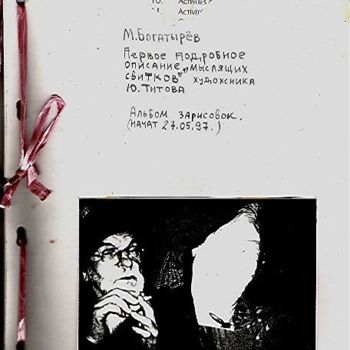 10. Activités
11. Activit
М.Богатырёв
Первое подробное
описание „мыслящих
свитков" художника
Ю.Титова
Альбом зарисовок.
(начат 27.05.97.)